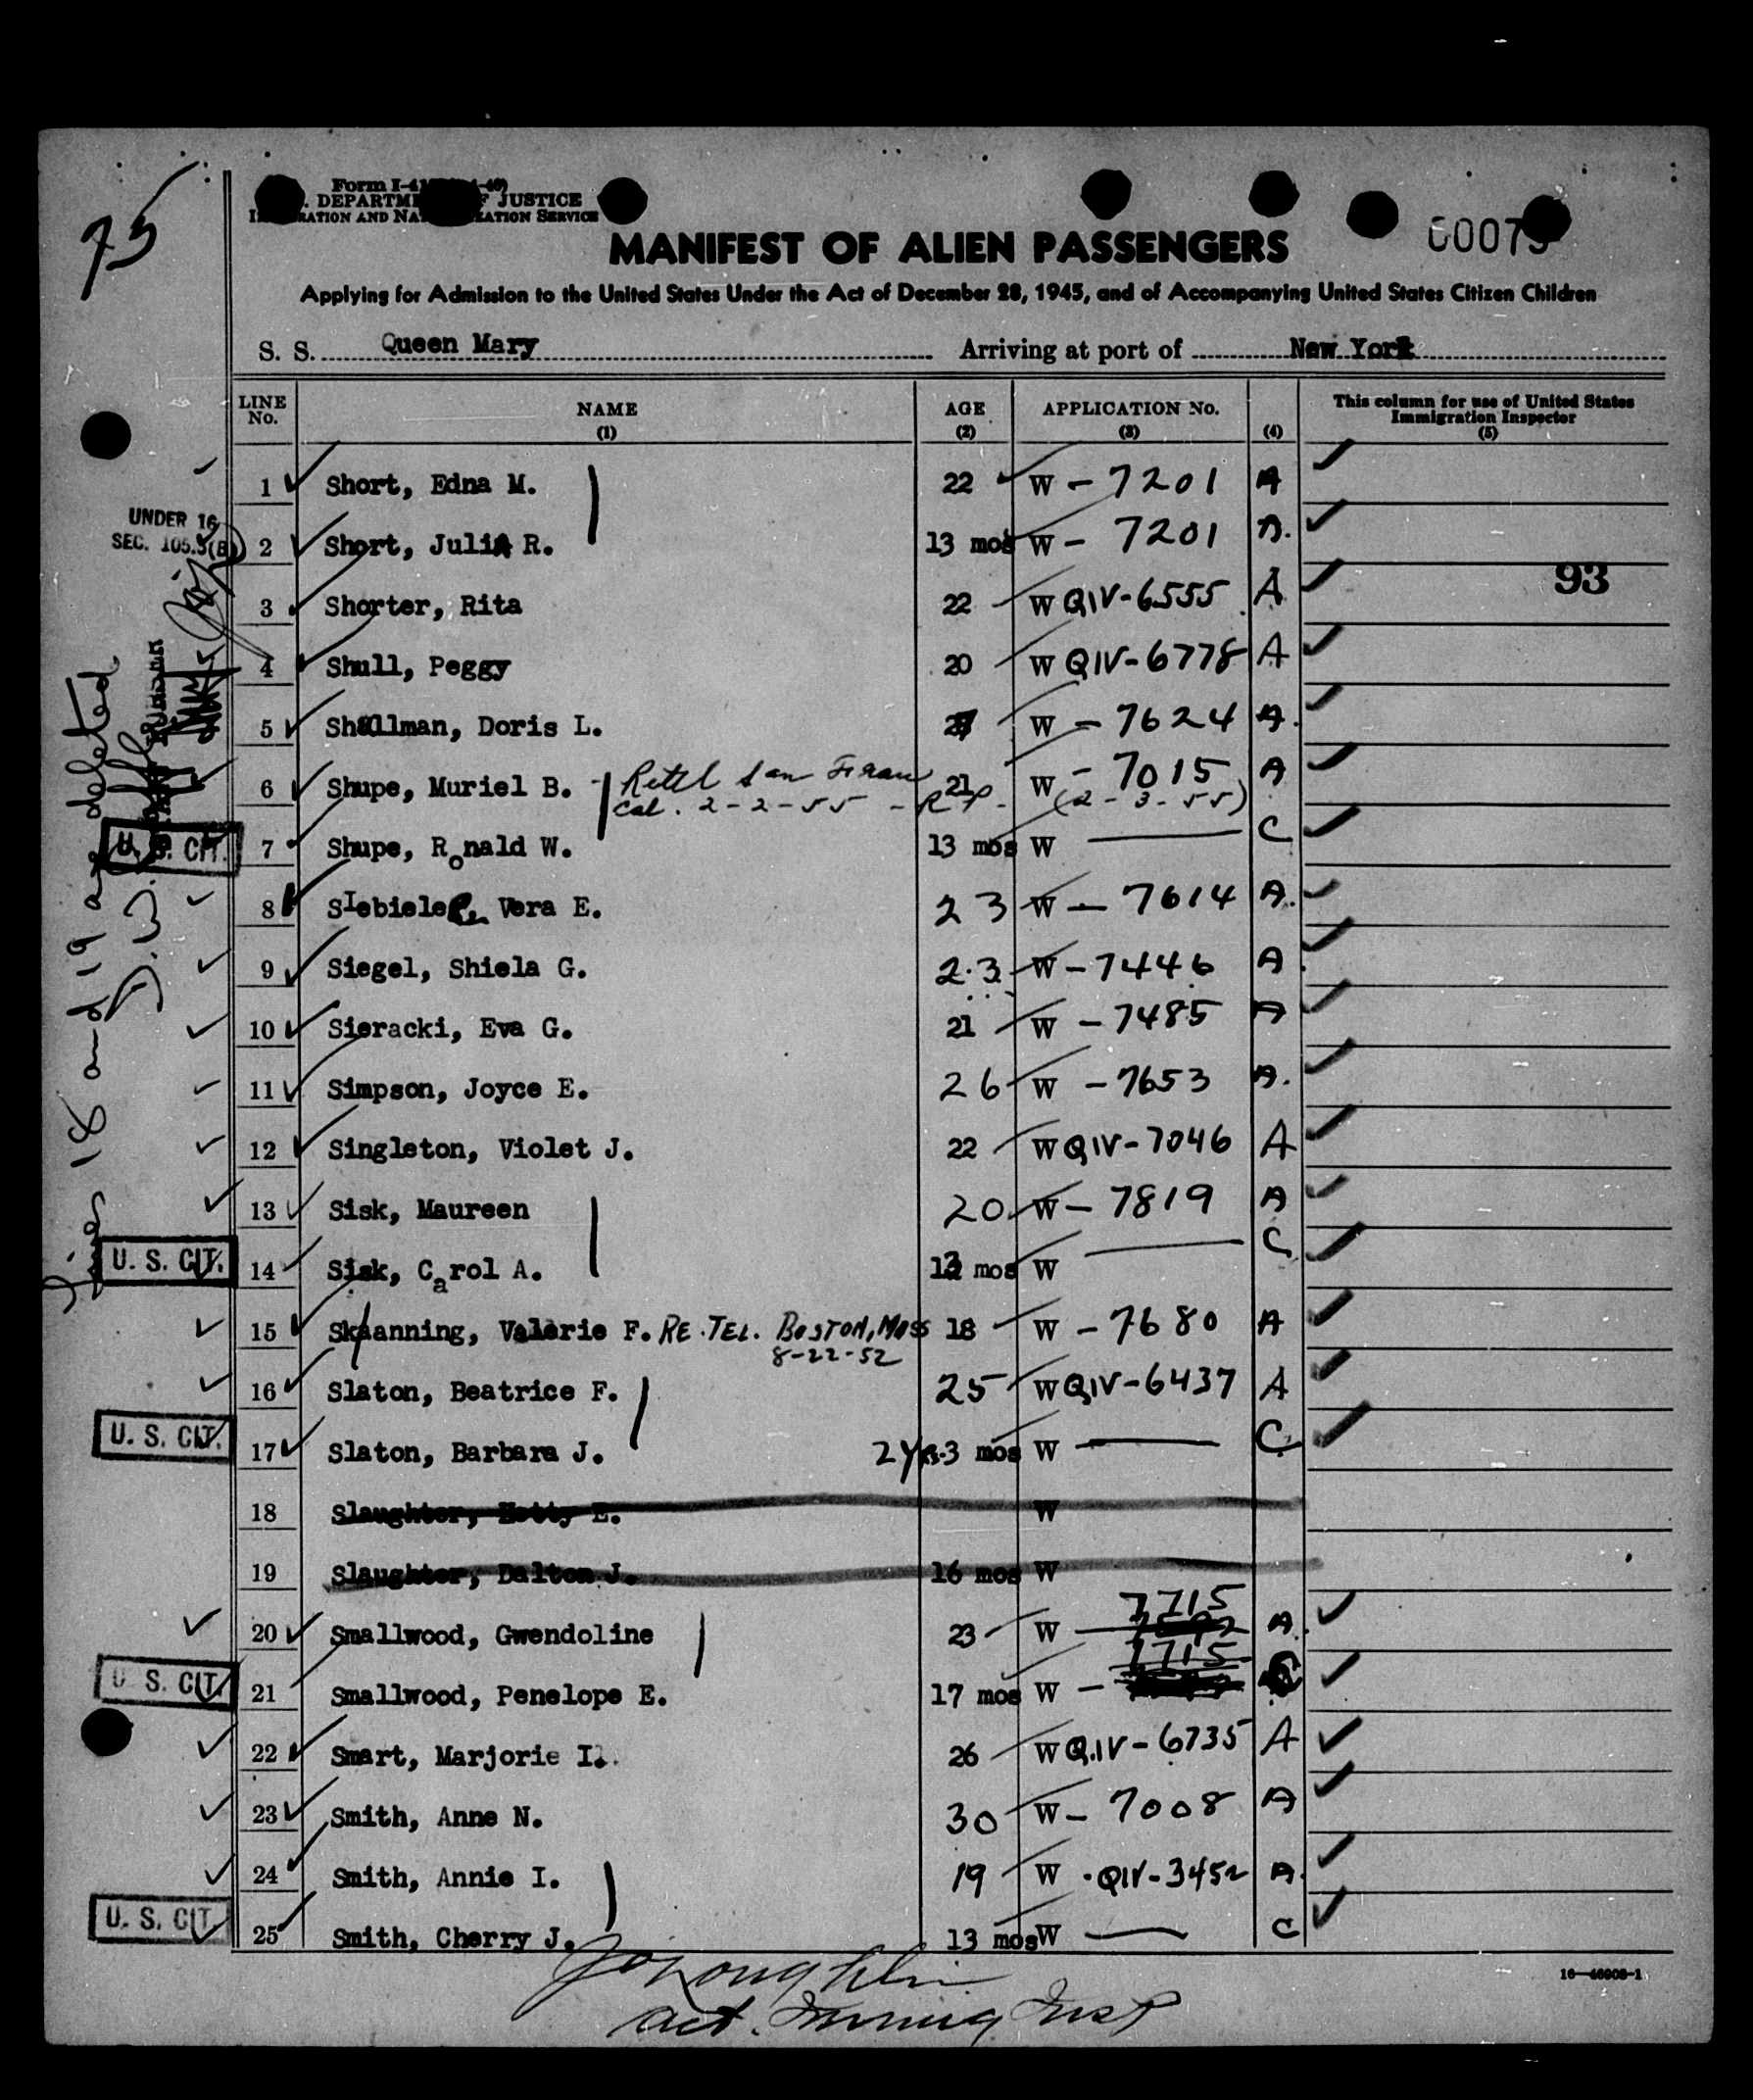 75
Form I-41
DEPARTMENT OF JUSTICE
IMMIGRATION AND NATURALIZATION SERVICE
MANIFEST OF ALIEN PASSENGERS
Applying for Admission to the United States Under the Act of December 28, 1945, and of Accompanying United States Citizen Children
S. S. Queen Mary Arriving at port of New York
LINE No. NAME (1) AGE (2) APPLICATION No. (3) (4) This column for use of United States Immigration Inspector (5)
1 Short, Edna M. 22 W - 7201 A
UNDER 16
SEC. 105.3(B) 2 Short, Julia R. 13 mos W - 7201 A.
93
3 Shorter, Rita 22 W QIV-6555 A
4 Shull, Peggy 20 W QIV-6778 A
5 Shullman, Doris L. W - 7624 A.
6 Shupe, Muriel B. - Retel San Fran 21 W - 7015 A
Cal. 2-2-55 - R.P. (2-3-55)
U. S. CIT. 7 Shupe, Ronald W. 13 mos W C
8 Vera E. 23 W - 7614 A.
9 Siegel, Shiela G. 23 W - 7446 A.
10 Sieracki, Eva G. 21 W - 7485 A
11 Simpson, Joyce E. 26 W - 7653 A.
12 Singleton, Violet J. 22 W QIV-7046 A
13 Sisk, Maureen 20 W - 7819 A
U. S. CIT. 14 Sisk, Carol A. 13 mos W C
15 Skaanning, Valerie F. RE. TEL. BOSTON, MASS 18 W - 7680 A
8-22-52
16 Slaton, Beatrice F. 25 W QIV-6437 A
U. S. CIT. 17 Slaton, Barbara J. 2 yrs. 3 mos W C
18 Slaughter, E. W
19 Slaughter, Dalton J. 16 mos W
7715
20 Smallwood, Gwendoline 23 W A.
7715
U. S. CIT. 21 Smallwood, Penelope E. 17 mos W - C
22 Smart, Marjorie I. 26 W Q.IV-6735 A
23 Smith, Anne N. 30 W - 7008 A
24 Smith, Annie I. 19 W QIV-3452 A.
U. S. CIT. 25 Smith, Cherry J. 13 mos W C
Act. Immig Insp
Lines 18 and 19 are deleted